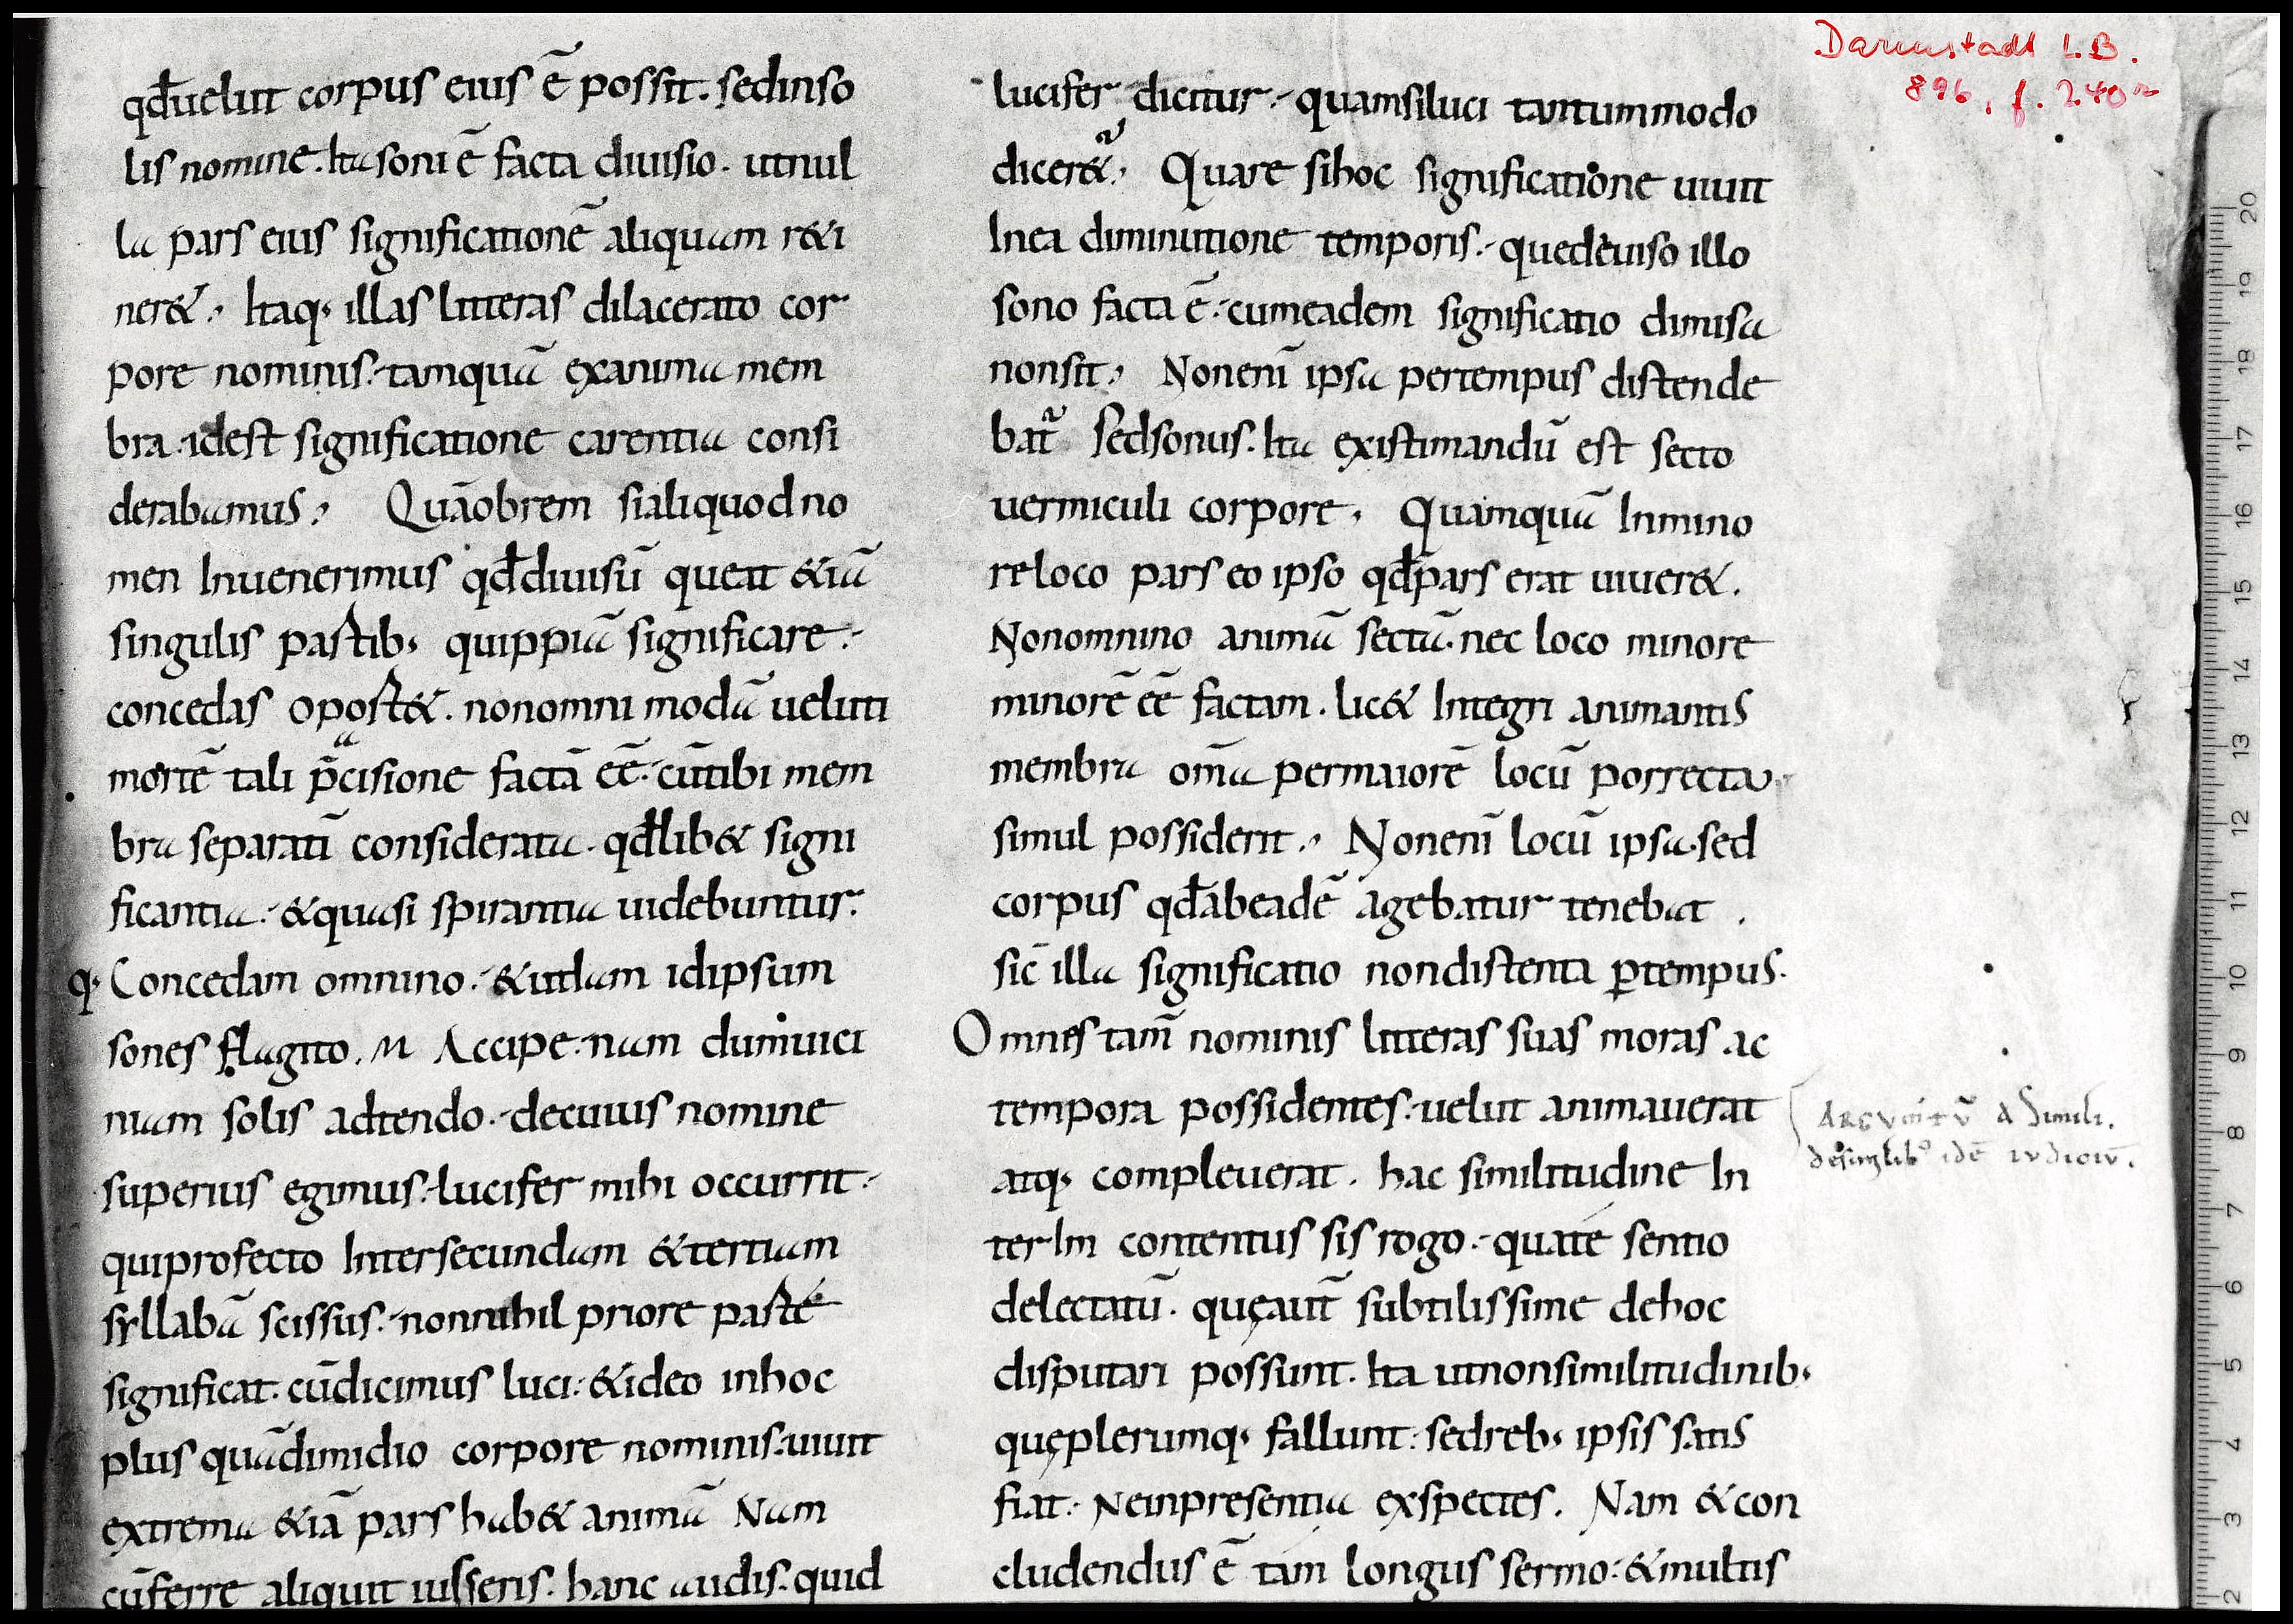 qđuelut corpus eius ē possit. sedinso
lis nomine. Ita soni ē facta diuisio. utnul
la pars eius significationē aliquam r&i
ner&. Itaq; illas litteras dilacerato cor
pore nominis. tamquā exanima mem
bra. idest significatione carentia consi
derabamus. Quāobrem sialiquod no
men Inuenerimus qđdiuisū queat &iā
singulis partib; quippiā significare.
concedas oport&. nonomni modā ueluti
mortē tali p̄cisione factā eē. cūtibi mem
bra separatī considerata. qđlib& signi
ficantia. &quasi spirantia uidebuntur.
q; Concedam omnino. &utdam idipsum
sones flagito. M Accipe. nam dumuici
niam solis adtendo. decuius nomine
superius egimus. lucifer mihi occurrit.
quiprofecto Intersecundam &tertiam
syllabā scissus. nonnihil priore parte
significat. cūdicimus luci. &ideo inhoc
plus quādimidio corpore nominis. uiuit
extrema &iā pars hab& animā Nam
cūferre aliquit iusseris. hanc audis. quid
Darmstadt L.B.
896, f. 240r
lucifer dicitur. quamsiluci tantummodo
dicer&. Quare sihoc significatione uiuit
Inea diminutione temporis. quedeuiso illo
sono facta ē. cumeadem significatio diuisa
nonsit. Nonenī ipsa pertempus distende
bat̄ sedsonus. Ita existimandū est secto
uermiculi corpore. Quamquā Inmino
re loco pars eo ipso qđpars erat uiuer&.
Nonomnino animā sectā. nec loco minore
minorē eē factam. lic& Integri animantis
membra om̄a permaiorē locū porrecta
simul possiderit. Nonenī locū ipsa. sed
corpus qđabeadē agebatur tenebat.
sic̄ illa significatio nondistenta ꝑtempus.
Omnes tam̄ nominis litteras suas moras ac
tempora possidentes. uelut animauerat
atq; compleuerat. hac similitudine In
terIm contentus sis rogo. quate sentio
delectatū. quęaut̄ subtilissime dehoc
disputari possunt. Ita utnonsimilitudinib;
quęplerumq; fallunt. sedreb; ipsis satis
fiat. Neinpresentia exspectes. Nam &con
cludendus ē tam longus sermo. &multis
Argumtū a Simili.
desimilib; idē iudiciū.